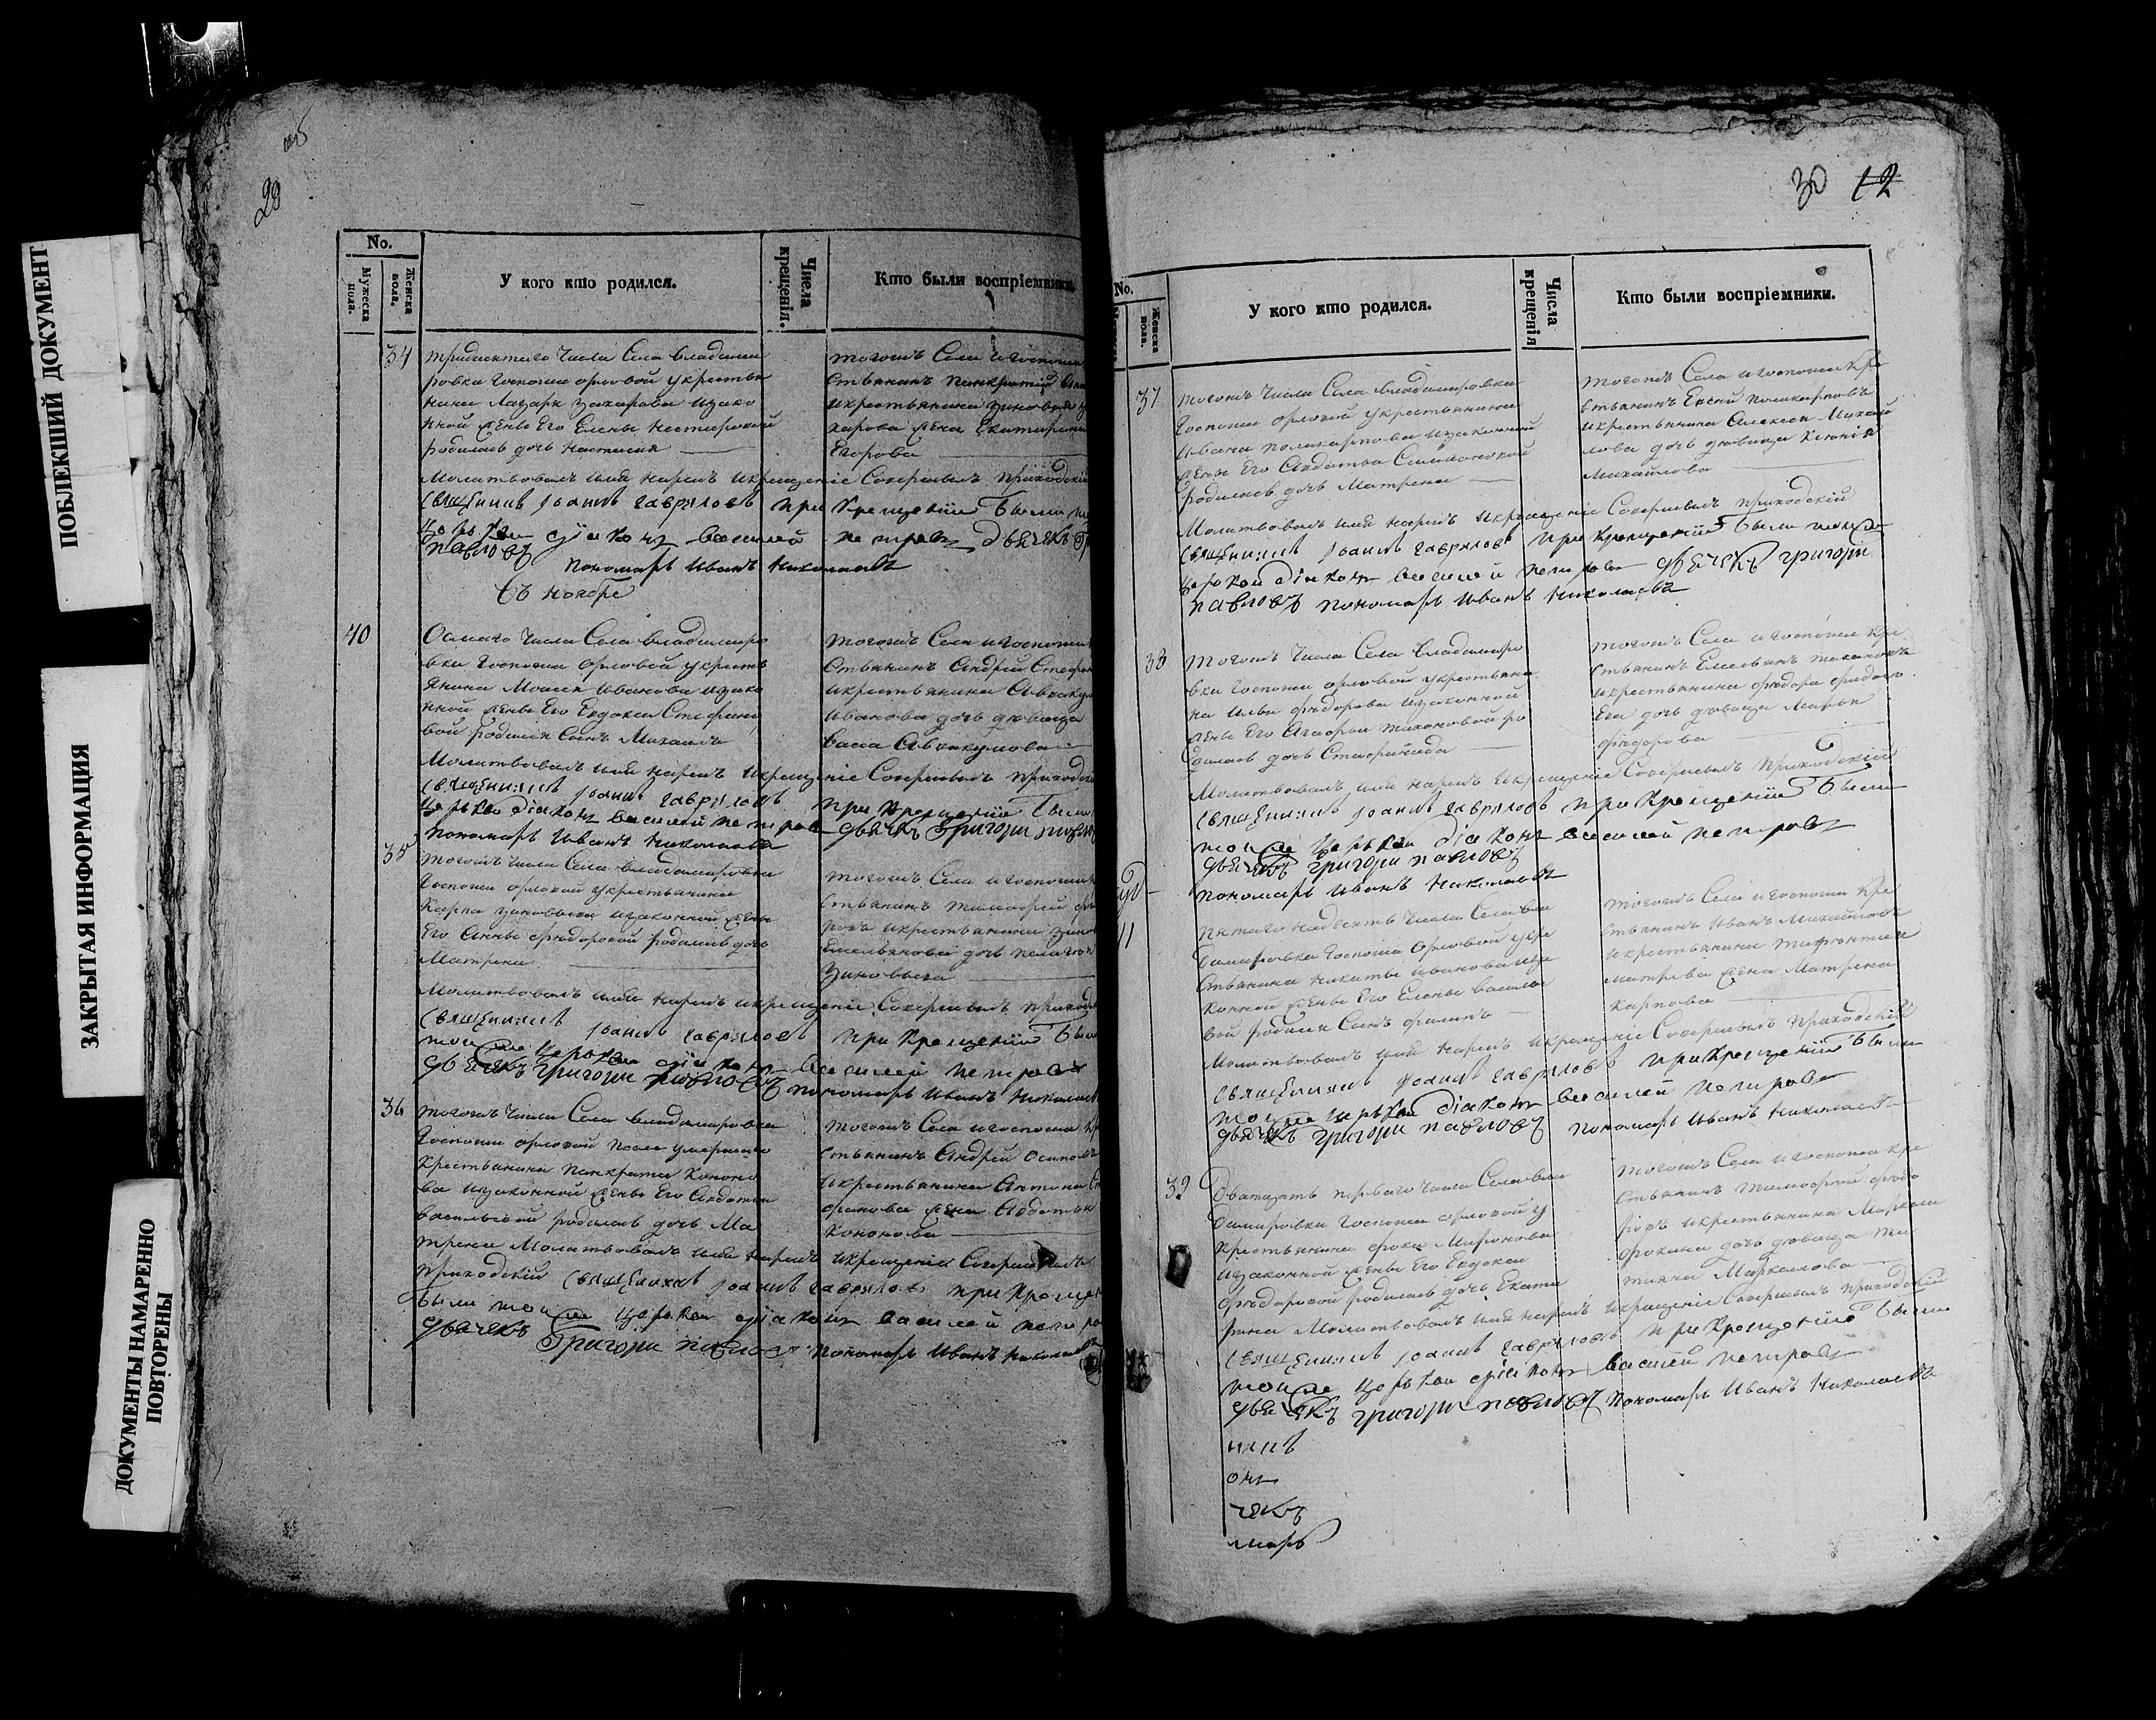 ПОБЛЕКШИЙ ДОКУМЕНТ
ЗАКРЫТАЯ ИНФОРМАЦИЯ
ДОКУМЕНТЫ НАМАРЕННО
ПОВТОРЕНЫ
29
No.
Мужеска пола.
Женска пола.
У кого кто родился.
Числа крещенія.
Кто были воспріемники.
34
тридцатаго числа Села владими
ровки Госпожи орловой укрестья
нина Лазаря захарова изако
нной жены Его Елены нестировой
родилась дочь настасия
тогожъ Села и Госпожи
Стьянинъ панкратій
икрестьянина
харова жена Екатерина
Егорова
Молитвовалъ имя нарекъ икрещеніе Совершилъ приходскій
Священникъ Іоаннъ гавриловъ при крещеніи Были
церкви діаконъ василей петровъ дьячекъ
павловъ
пономарь Иванъ николаевъ
Въ ноябре
40
Осмаго числа Села владимиро
вки Госпожи орловой укресть
янина Моисея иванова изако
нной жены Его Евдокеи Стефано
вой родился Сынъ Михаилъ
тогожъ Села и Госпожи
Стьянинъ Андрей Стефа
икрестьянина Аввакум
иванова дочь девица
васа Аввакумова
Молитвовалъ имя нарекъ икрещеніе Совершилъ приходски
Священникъ Іоаннъ гавриловъ при крещеніи Были
церкви діаконъ василей петровъ дьячекъ Григори павлов
пономарь Иванъ николаевъ
35
тогожъ числа Села владимировки
Госпожи орловой укрестьянина
Карпа зиновьева изаконной жены
Его Анны федоровой родилась дочь
Матрена
тогожъ Села и Госпожи
Стьянинъ тимофей
ровъ икрестьянина зино
Емельяновой дочь пелагея
зиновьева
Молитвовалъ имя нарекъ икрещеніе Совершилъ приход
Священникъ Іоаннъ гавриловъ при крещеніи Были
тойже церкви діаконъ василей петровъ
дьячекъ григори павловъ пономарь Иванъ николаев
36
тогожъ числа Села владимировки
Госпожи орловой после умершаго
крестьянина панкратаКононо
ва изаконной жены Его Авдотьи
васильевой родилась дочь Ма
трена Молитвовалъ имя нарекъ икрещеніе Совершилъ
тогожъ Села и Госпожи
Стьянинъ Андрей осиповъ
икрестьянина Антона
фанова жена Авдотья
Кононова
приходскій Священникъ Іоаннъ гавриловъ при креще
Были тойже церкви діаконъ василей петро
дьячекъ Григори павловъ пономарь Иванъ николаевъ
30 12
No.
Женска пола.
У кого кто родился.
Числа крещенія
Кто были воспріемники.
37
тогожъ числа Села владимировки
Госпожи орловой укрестьянина
Ивана поликарпова изаконной
жены Его Авдотьи Симионовой
родилась дочь Матрена
тогожъ Села и Госпожи Кре
стьянинъ Евсей поликарповъ
икрестьянина Алексея Михай
лова дочь девица Ксения
Михайлова
Молитвовалъ имя нарекъ икрещеніе Совершилъ приходскій
Священникъ Іоаннъ гавриловъ при крещеніи Были тойже
церкви діаконъ василей петровъ дьячекъ григори
павловъ пономарь Иванъ николаевъ
38
тогожъ числа Села владимиро
вки Госпожи орловой укрестьяни
на ильи федорова изаконной
жены Его Агафьи тихоновой ро
дилась дочь Стефанида
тогожъ Села и Госпожи Кре
стьянинъ Емельянъ
икрестьянина федора
Ева дочь девица Марья
федорова
Молитвовалъ имя нарекъ икрещеніе Совершилъ приходскій
Священникъ Іоаннъ гавриловъ при крещеніи Были
тойже церкви діаконъ василей петровъ
дьячекъ григори павловъ
пономарь Иванъ николаевъ
41
пятаго надесять числа Села вла
димировки Госпожи орловой укре
стьянина никиты иванова иза
конной жены Его Елены василье
вой родился Сынъ филипъ
тогожъ Села и Госпожи Кре
стьянинъ Иванъ Михайловъ
икрестьянина
жена Матрена
Карпова
Молитвовалъ имя нарекъ икрещеніе Совершилъ приходскій
Священникъ Іоаннъ гавриловъ при крещеніи Были
тойже церкви діаконъ василей петровъ
дьячекъ григори павловъ пономарь Иванъ николаевъ
39
Дватцать перваго числа Села вла
димировки Госпожи орловой у
крестьянина фрола Миронова
изаконной жены Его Евдокеи
федоровой родилась дочь Екате
рина Молитвовалъ имя нарекъ икрещеніе Совершилъ приходскій
тогожъ Села и Госпожи Кре
стьянинъ тимофей федо
ровъ икрестьянина Маркела
фокина дочь девица та
тияна Маркелова
Священникъ Іоаннъ гавриловъ при крещеніи Были
тойже церкви діаконъ василей петровъ
дьячекъ григори павловъ пономарь Иванъ николаевъ
никъ
онъ
чекъ
марь